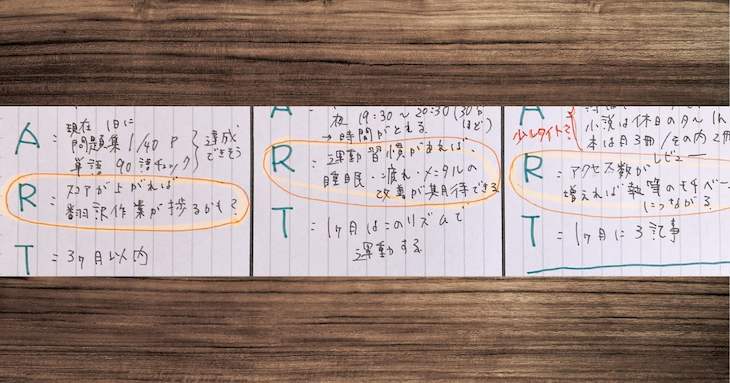 A = 現在 1日に
問題集 1/40 P
単語 90語チェック
達成
できそう
R = スコアが上がれば
翻訳作業が捗るかも?
T = 3ヶ月以内
夜 19:30～20:30(30分
→時間がとれる ほど)
R = 運動習慣があれば、
睡眠・疲れ・メンタルの
改善が期待できる
T = 1ヶ月はこのリズムで
運動する
少しタイト?
小説は休日の夕～ 1h
本は月3冊/その内2冊
レビュー
R = アクセス数が
増えれば執筆のモチベー
につながる
T = 1ヶ月に3記事